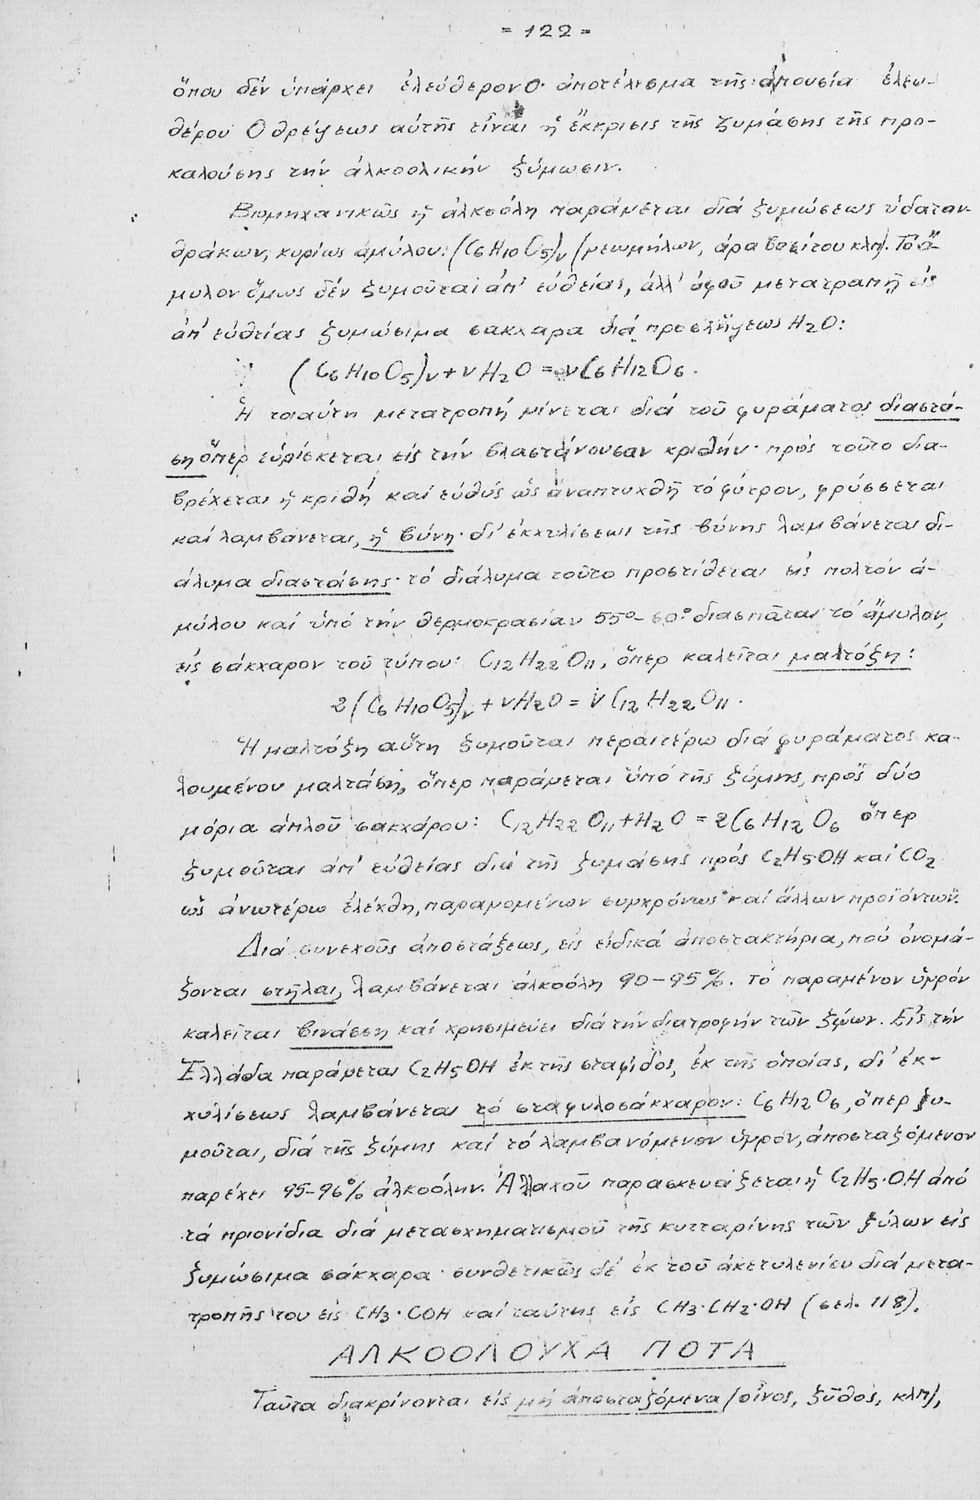 = 122 =
ὅπου δέν ὑπάρχει ἐλεύθερον O· ἀποτέλεσμα τῆς ἀπουσία ἐλευ-
θέρου O θρέψεως αὐτῆς εἶναι ἡ ἔκκρισις τῆς ζυμάσης τῆς προ-
καλούσης τήν ἀλκοολικήν ζύμωσιν.
Βιομηχανικῶς ἡ ἀλκοόλη παράγεται διά ζυμώσεως ὑδαταν-
θράκων, κυρίως ἀμύλου: (C6H10O5)ν (γεωμήλων, ἀραβοσίτου κλπ). Τό ἄ-
μυλον ὅμως δέν ζυμοῦται ἀπ' εὐθείας, ἀλλ' ἀφοῦ μετατραπῇ εἰς
ἀπ' εὐθείας ζυμώσιμα σάκχαρα διά προσλήψεως H2O:
(C6H10O5)ν + νH2O = νC6H12O6.
Ἡ τοιαύτη μετατροπή γίνεται διά τοῦ φυράματος διαστά-
ση ὅπερ εὑρίσκεται εἰς τήν βλαστάνουσαν κριθήν· πρός τοῦτο δια-
βρέχεται ἡ κριθή καί εὐθύς ὡς ἀναπτυχθῇ τό φύτρον, φρύσσεται
καί λαμβάνεται, ἡ βύνη· δι' ἐκχυλίσεως τῆς βύνης λαμβάνεται δι-
άλυμα διαστάσης· τό διάλυμα τοῦτο προστίθεται εἰς πολτόν ἀ-
μύλου καί ὑπό τήν θερμοκρασίαν 55°-60° διασπᾶται τό ἄμυλον,
εἰς σάκχαρον τοῦ τύπου: C12H22O11, ὅπερ καλεῖται μαλτόζη:
2(C6H10O5)ν + νH2O = νC12H22O11.
Ἡ μαλτόζη αὕτη ζυμοῦται περαιτέρω διά φυράματος κα-
λουμένου μαλτάση, ὅπερ παράγεται ὑπό τῆς ζύμης, πρός δύο
μόρια ἁπλοῦ σακχάρου: C12H22O11 + H2O = 2C6H12O6 ὅπερ
ζυμοῦται ἀπ' εὐθείας διά τῆς ζυμάσης πρός C2H5OH καί CO2
ὡς ἀνωτέρω ἐλέχθη, παραγομένων συγχρόνως καί ἄλλων προϊόντων.
Διά συνεχοῦς ἀποστάξεως, εἰς εἰδικά ἀποστακτήρια, πού ὀνομά-
ζονται στῆλαι, λαμβάνεται ἀλκοόλη 90-95%. Τό παραμένον ὑγρόν
καλεῖται βινάσση καί χρησιμεύει διά τήν διατροφήν τῶν ζῴων. Εἰς τήν
Ἑλλάδα παράγεται C2H5OH ἐκ τῆς σταφίδος, ἐκ τῆς ὁποίας, δι' ἐκ-
χυλίσεως λαμβάνεται τό σταφυλοσάκχαρον: C6H12O6, ὅπερ ζυ-
μοῦται, διά τῆς ζύμης καί τό λαμβανόμενον ὑγρόν, ἀποσταζόμενον
παρέχει 95-96% ἀλκοόλην. Ἀλλαχοῦ παρασκευάζεται ἡ C2H5·OH ἀπό
τά πριονίδια διά μετασχηματισμοῦ τῆς κυτταρίνης τῶν ξύλων εἰς
ζυμώσιμα σάκχαρα· συνθετικῶς δέ ἐκ τοῦ ἀκετυλενίου διά μετα-
τροπῆς του εἰς CH3·COH καί ταύτης εἰς CH3·CH2·OH (σελ. 118).
ΑΛΚΟΟΛΟΥΧΑ ΠΟΤΑ
Ταῦτα διακρίνονται εἰς μή ἀποσταζόμενα (οἶνος, ζῦθος, κλπ),